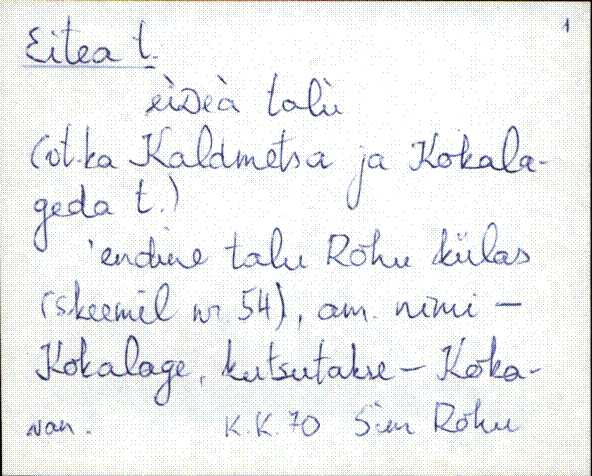 1
Eitea t.
èiᴅeà talù
(vt.ka Kaldmetsa ja Kokala-
geda t.)
'endine talu Rõhu külas
(skeemil nr. 54), am. nimi –
Kokalage, kutsutakse – Koka-
K.K. 70 Sim Rõhu